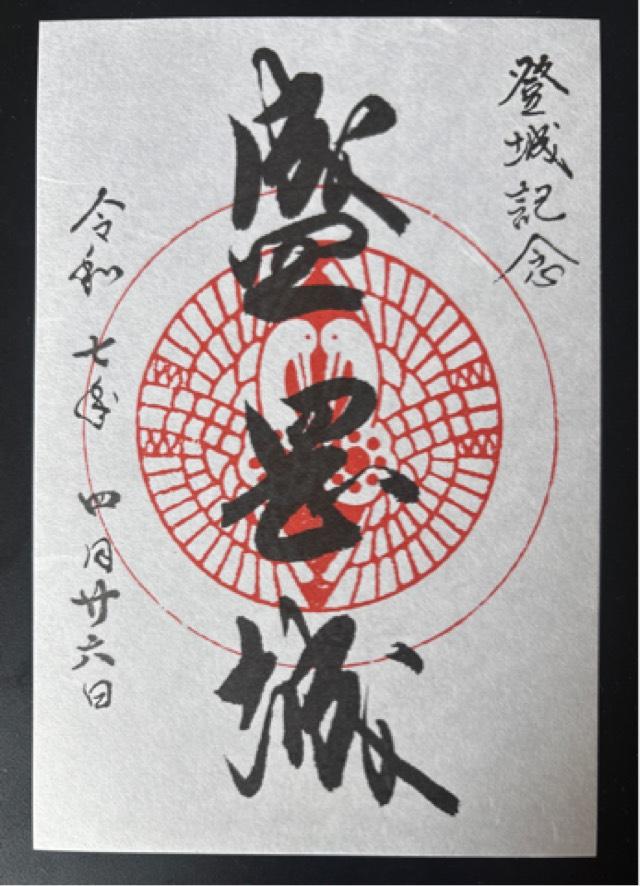 登城記念
盛岡城
令和七年四月廿六日